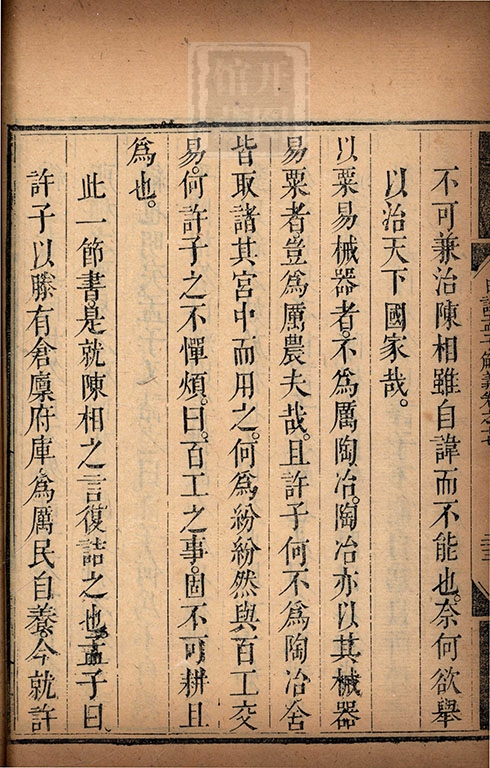 不可兼治陳相雖自諱而不能也。奈何欲舉
以治天下國家哉。
以粟易械器者。不爲厲陶冶。陶冶亦以其械器
易粟者。豈爲厲農夫哉。且許子何不爲陶冶舍
皆取諸其宮中而用之。何爲紛紛然與百工交
易。何許子之不憚煩。曰。百工之事。固不可耕且
爲也。
此一節書。是就陳相之言復詰之也。孟子曰
許子以滕有倉廩府庫。爲厲民自養。今就許